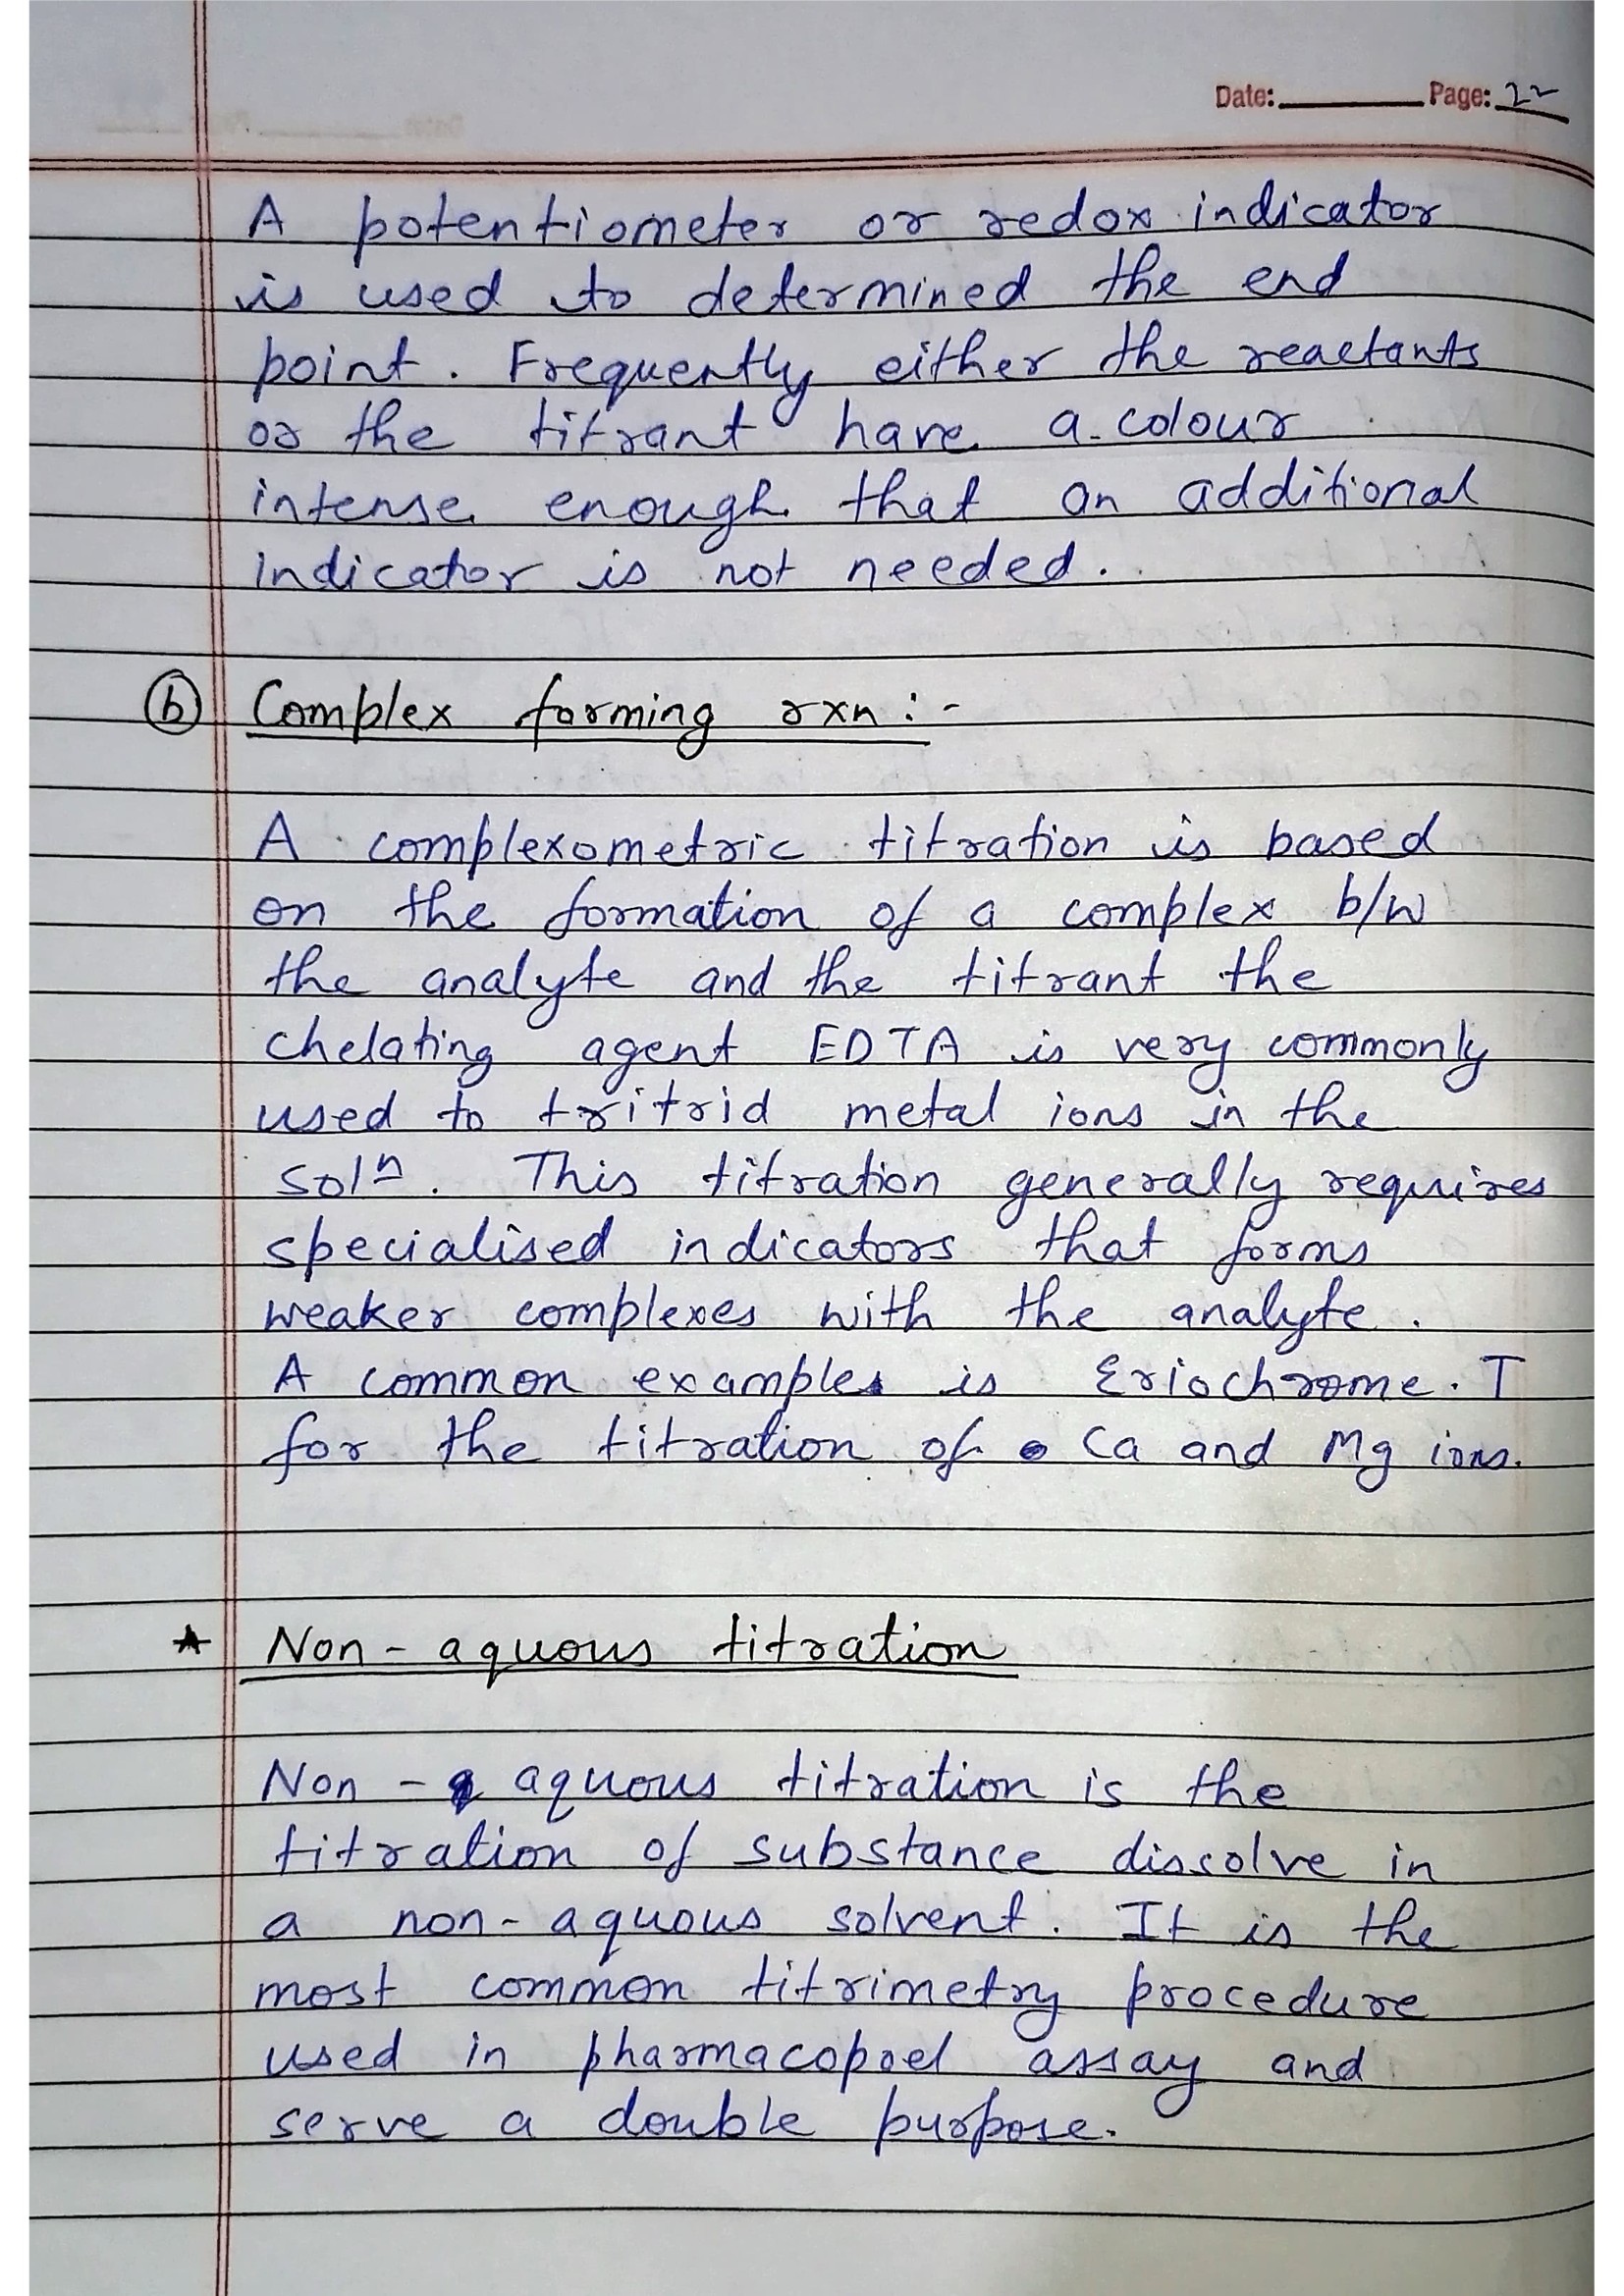 Date: Page: 22
A potentiometer or redox indicator
is used to determined the end
point. Frequently either the reactants
or the titrant have a colour
intense enough that an additional
indicator is not needed.
(b) Complex forming rxn :-
A complexometric titration is based
on the formation of a complex b/w
the analyte and the titrant the
chelating agent EDTA is very commonly
used to tritrid metal ions in the
solⁿ. This titration generally requires
specialised indicators that forms
weaker complexes with the analyte.
A common examples is Eriochrome. T
for the titration of Ca and Mg ions.
★ Non - aquous titration
Non - aquous titration is the
titration of substance dissolve in
a non - aquous solvent. It is the
most common titrimetry procedure
used in pharmacopoel assay and
serve a double purpose.